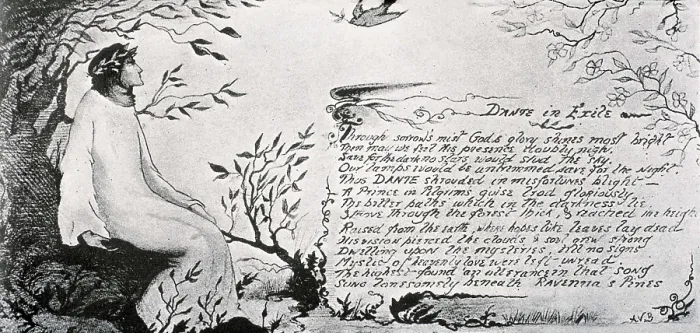 DANTE in Exile
Through sorrow's mist God's glory shines most bright
Then may we feel His presence doubly nigh.
Save for the dark no stars would stud the sky.
Our lamps would be untrimmed save for the night.
Thus DANTE shrouded in misfortunes blight —
A Prince in Pilgrims guise trod gloriously
The bitter paths which in the darkness lie.
Strove through the forest thick, & reached the height
Raised from the earth, where hopes like leaves lay dead
His vision pierced the clouds & soul grew strong
Dwelling upon the mysteries, till no signs
Mystic of heavenly love were left unread.
The highest found an utterance in that song
Sung lonesomely beneath RAVENNA's Pines